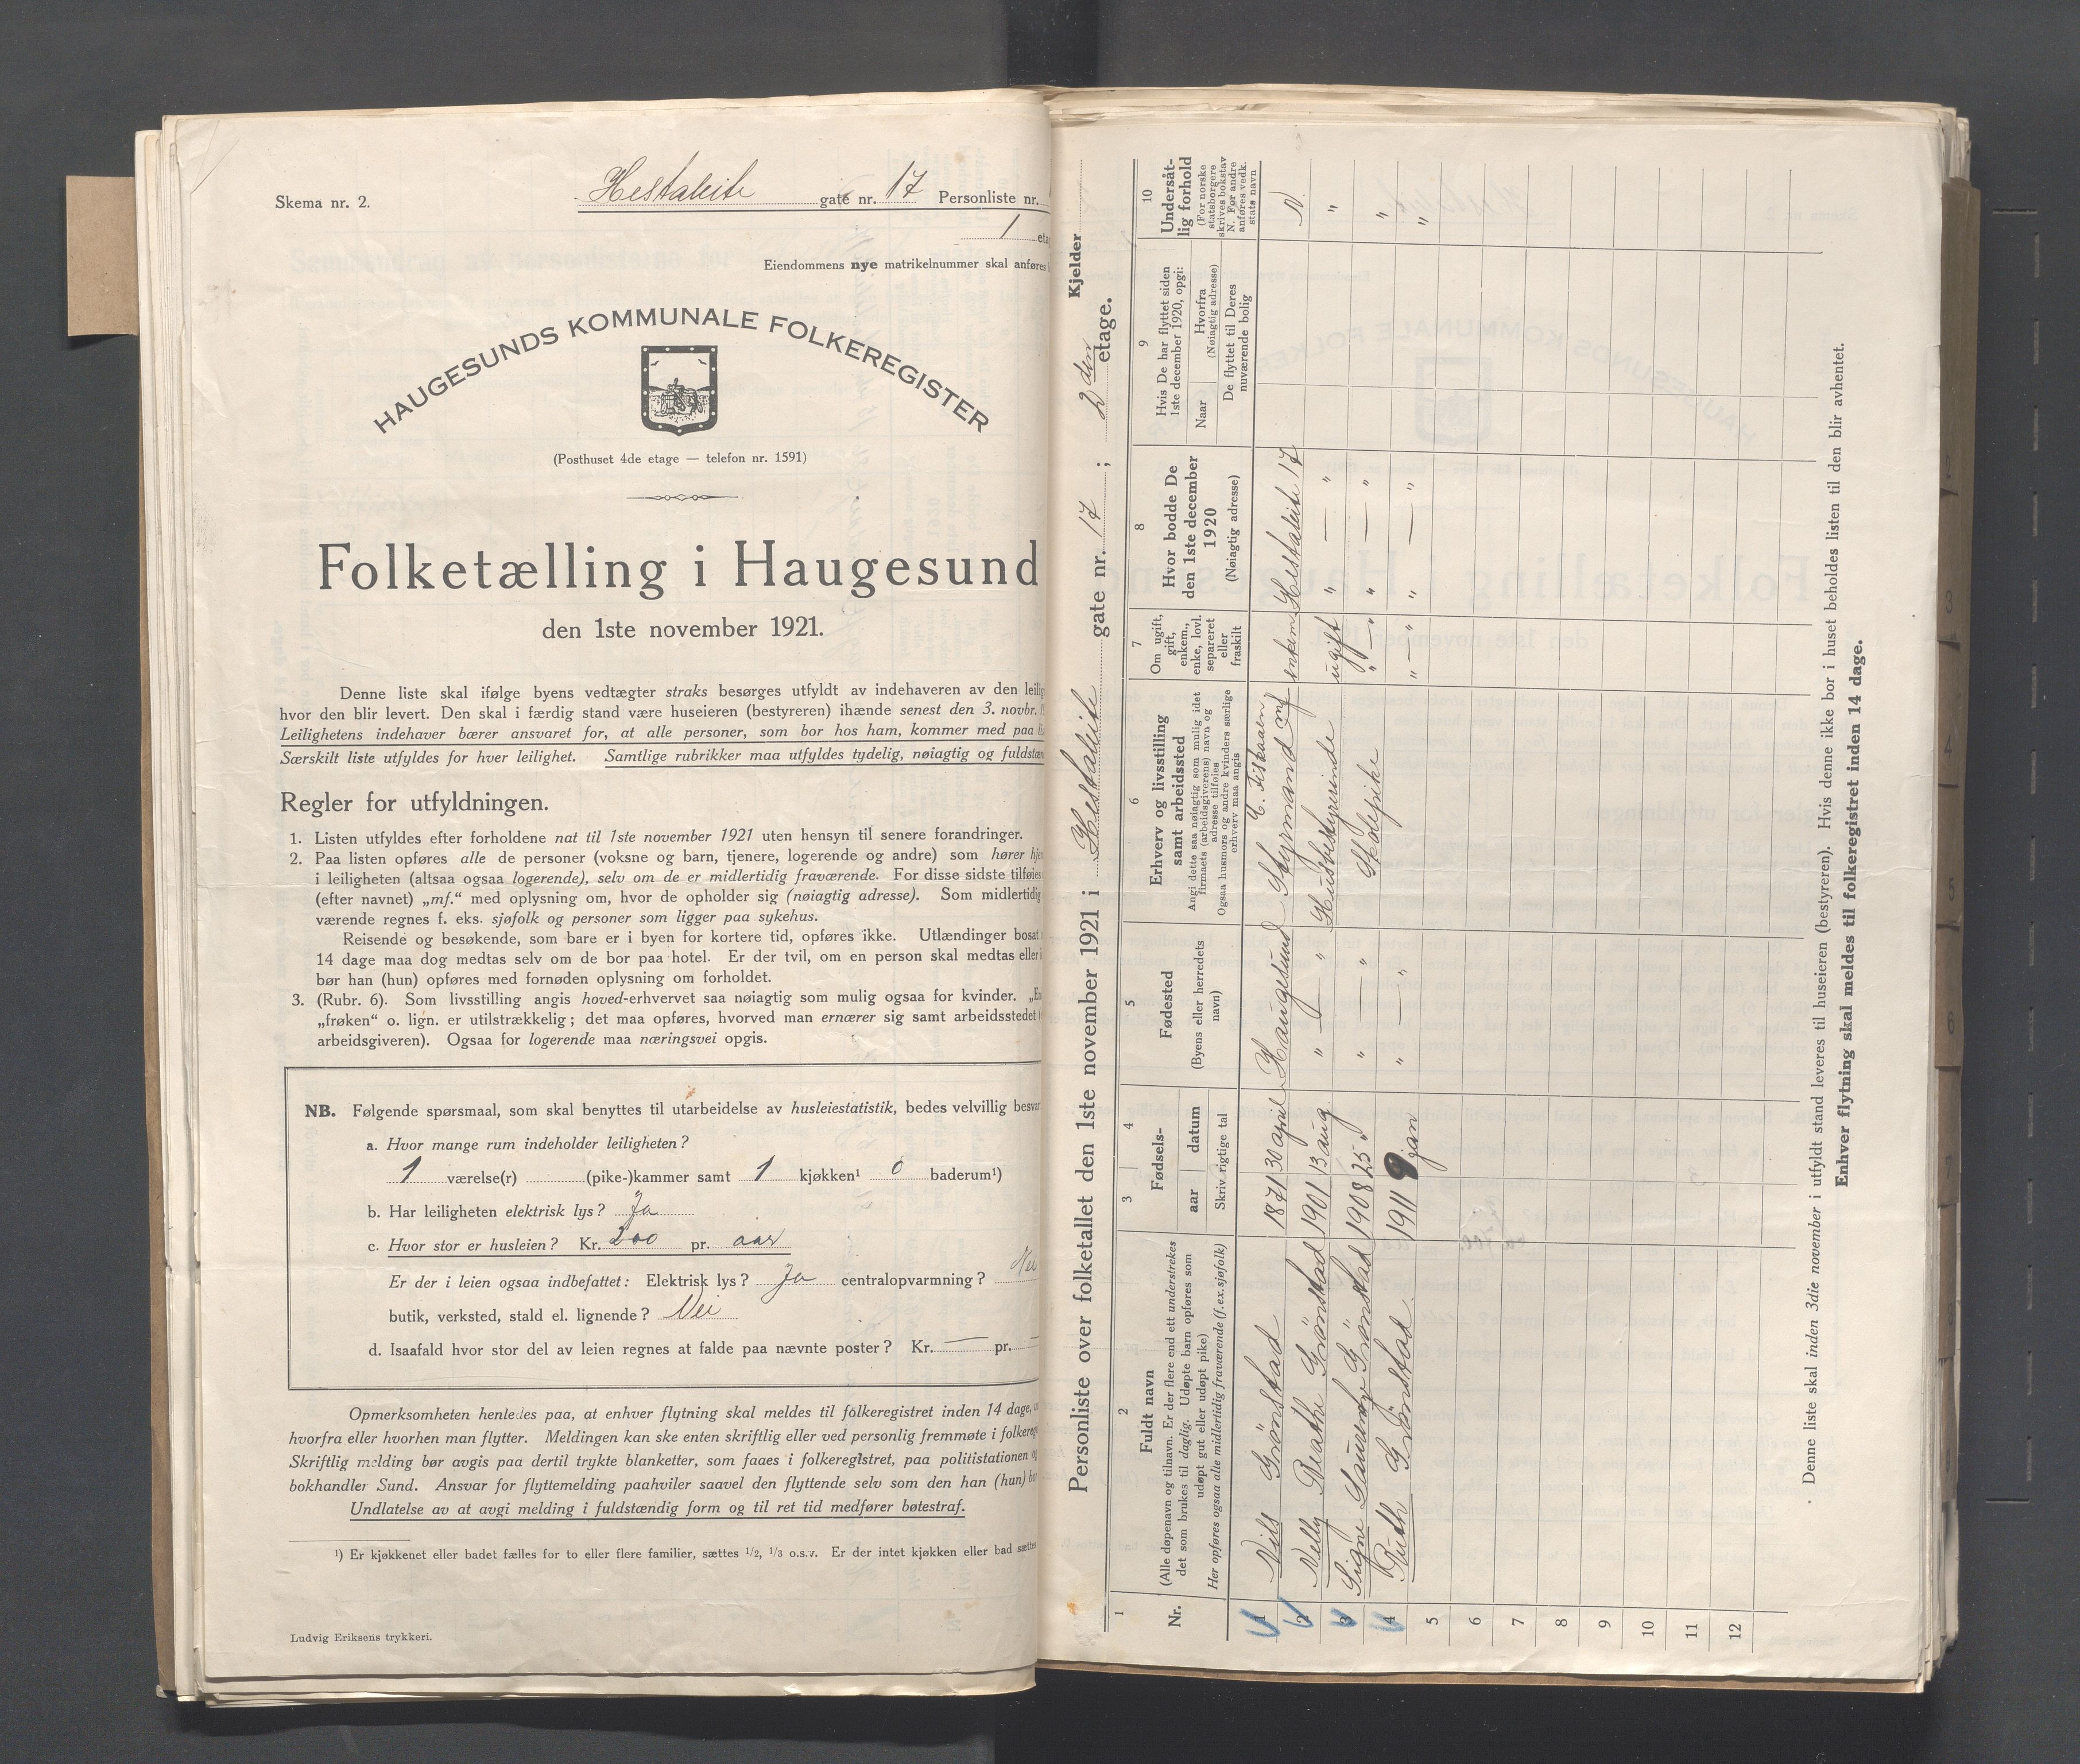 Skema nr. 2.
Hestaleite gate nr. 17 Personliste nr.
1 etag
Eiendommens nye matrikelnummer skal anføres
HAUGESUNDS KOMMUNALE FOLKEREGISTER
(Posthuset 4de etage — telefon nr. 1591)
Folketælling i Haugesund
den 1ste november 1921.
Denne liste skal ifølge byens vedtægter straks besørges utfyldt av indehaveren av den leilig
hvor den blir levert. Den skal i færdig stand være huseieren (bestyreren) ihænde senest den 3. novbr.
Leilighetens indehaver bærer ansvaret for, at alle personer, som bor hos ham, kommer med paa
Særskilt liste utfyldes for hver leilighet. Samtlige rubrikker maa utfyldes tydelig, nøiagtig og fuldstæn
Regler for utfyldningen.
1. Listen utfyldes efter forholdene nat til 1ste november 1921 uten hensyn til senere forandringer.
2. Paa listen opføres alle de personer (voksne og barn, tjenere, logerende og andre) som hører hje
i leiligheten (altsaa ogsaa logerende), selv om de er midlertidig fraværende. For disse sidste tilføies
(efter navnet) „mf.“ med oplysning om, hvor de opholder sig (nøiagtig adresse). Som midlertidig
værende regnes f. eks. sjøfolk og personer som ligger paa sykehus.
Reisende og besøkende, som bare er i byen for kortere tid, opføres ikke. Utlændinger bosat
14 dage maa dog medtas selv om de bor paa hotel. Er der tvil, om en person skal medtas eller
bør han (hun) opføres med fornøden oplysning om forholdet.
3. (Rubr. 6). Som livsstilling angis hoved-erhvervet saa nøiagtig som mulig ogsaa for kvinder. „En
„frøken“ o. lign. er utilstrækkelig; det maa opføres, hvorved man ernærer sig samt arbeidsstedet
arbeidsgiveren). Ogsaa for logerende maa næringsvei opgis.
NB. Følgende spørsmaal, som skal benyttes til utarbeidelse av husleiestatistik, bedes velvillig besvar
a. Hvor mange rum indeholder leiligheten?
1 værelse(r) (pike-)kammer samt 1 kjøkken¹ 0 baderum¹)
b. Har leiligheten elektrisk lys? Ja
c. Hvor stor er husleien? Kr. 200 pr. aar
Er der i leien ogsaa indbefattet: Elektrisk lys? Ja centralopvarmning? Nei
butik, verksted, stald el. lignende? Nei
d. Isaafald hvor stor del av leien regnes at falde paa nævnte poster? Kr. — pr. —
Opmerksomheten henledes paa, at enhver flytning skal meldes til folkeregistret inden 14 dage,
hvorfra eller hvorhen man flytter. Meldingen kan ske enten skriftlig eller ved personlig fremmøte i folkereg
Skriftlig melding bør avgis paa dertil trykte blanketter, som faaes i folkeregistret, paa politistationen
bokhandler Sund. Ansvar for flyttemelding paahviler saavel den flyttende selv som den han (hun) bor
Undlatelse av at avgi melding i fuldstændig form og til ret tid medfører bøtestraf.
¹) Er kjøkkenet eller badet fælles for to eller flere familier, sættes 1/2, 1/3 o.s.v. Er der intet kjøkken eller bad sættes
Ludvig Eriksens trykkeri.
Personliste over folketallet den 1ste november 1921 i Hestaleite gate nr. 17; 2den etage. Kjelder
1 2 3 4 5 6 7 8 9 10
Nr.
Fuldt navn
(Alle døpenavn og tilnavn. Er der flere end ett understrekes
det som brukes til daglig. Udøpte barn opføres som
udøpt gut eller udøpt pike)
Her opføres ogsaa alle midlertidig fraværende (f.ex.sjøfolk)
Fødsels-
aar datum
Skriv rigtige tal
Fødested
(Byens eller herredets
navn)
Erhverv og livsstilling
samt arbeidssted
Angi dette saa nøiagtig som mulig idet
firmaets (arbeidsgiverens) navn og
adresse tilføies
Ogsaa husmors og andre kvinders særlige
erhverv maa angis
Om ugift,
gift,
enkem.,
enke, lovl.
separeret
eller
fraskilt
Hvor bodde De
den 1ste december
1920
(Nøiagtig adresse)
Hvis De har flyttet siden
1ste december 1920, opgi:
Naar
Hvorfra
(Nøiagtig adresse)
De flyttet til Deres
nuværende bolig
Undersåt-
lig forhold
(For norske
statsborgere
skrives bokstav
N. For andre
anføres vedk.
stats navn
E. Fiskaaen
1 Nils Grönstad 1871 30 april Haugesund Styrmand mf enkem Hestaleite 17 N.
2 Nelly Beathe Grönstad 1901 13 aug " — " Husbestyrerinde ugift " — " "
3 Signe Laurentze Grönstad 1908 25 " " — " Skolepike " — " " — " "
4 Ruth Grönstad. 1911 9 jan " — " " — " " — " "
5
6
7
8
9
10
11
12
Denne liste skal inden 3die november i utfyldt stand leveres til huseieren (bestyreren). Hvis denne ikke bor i huset beholdes listen til den blir avhentet.
Enhver flytning skal meldes til folkeregistret inden 14 dage.